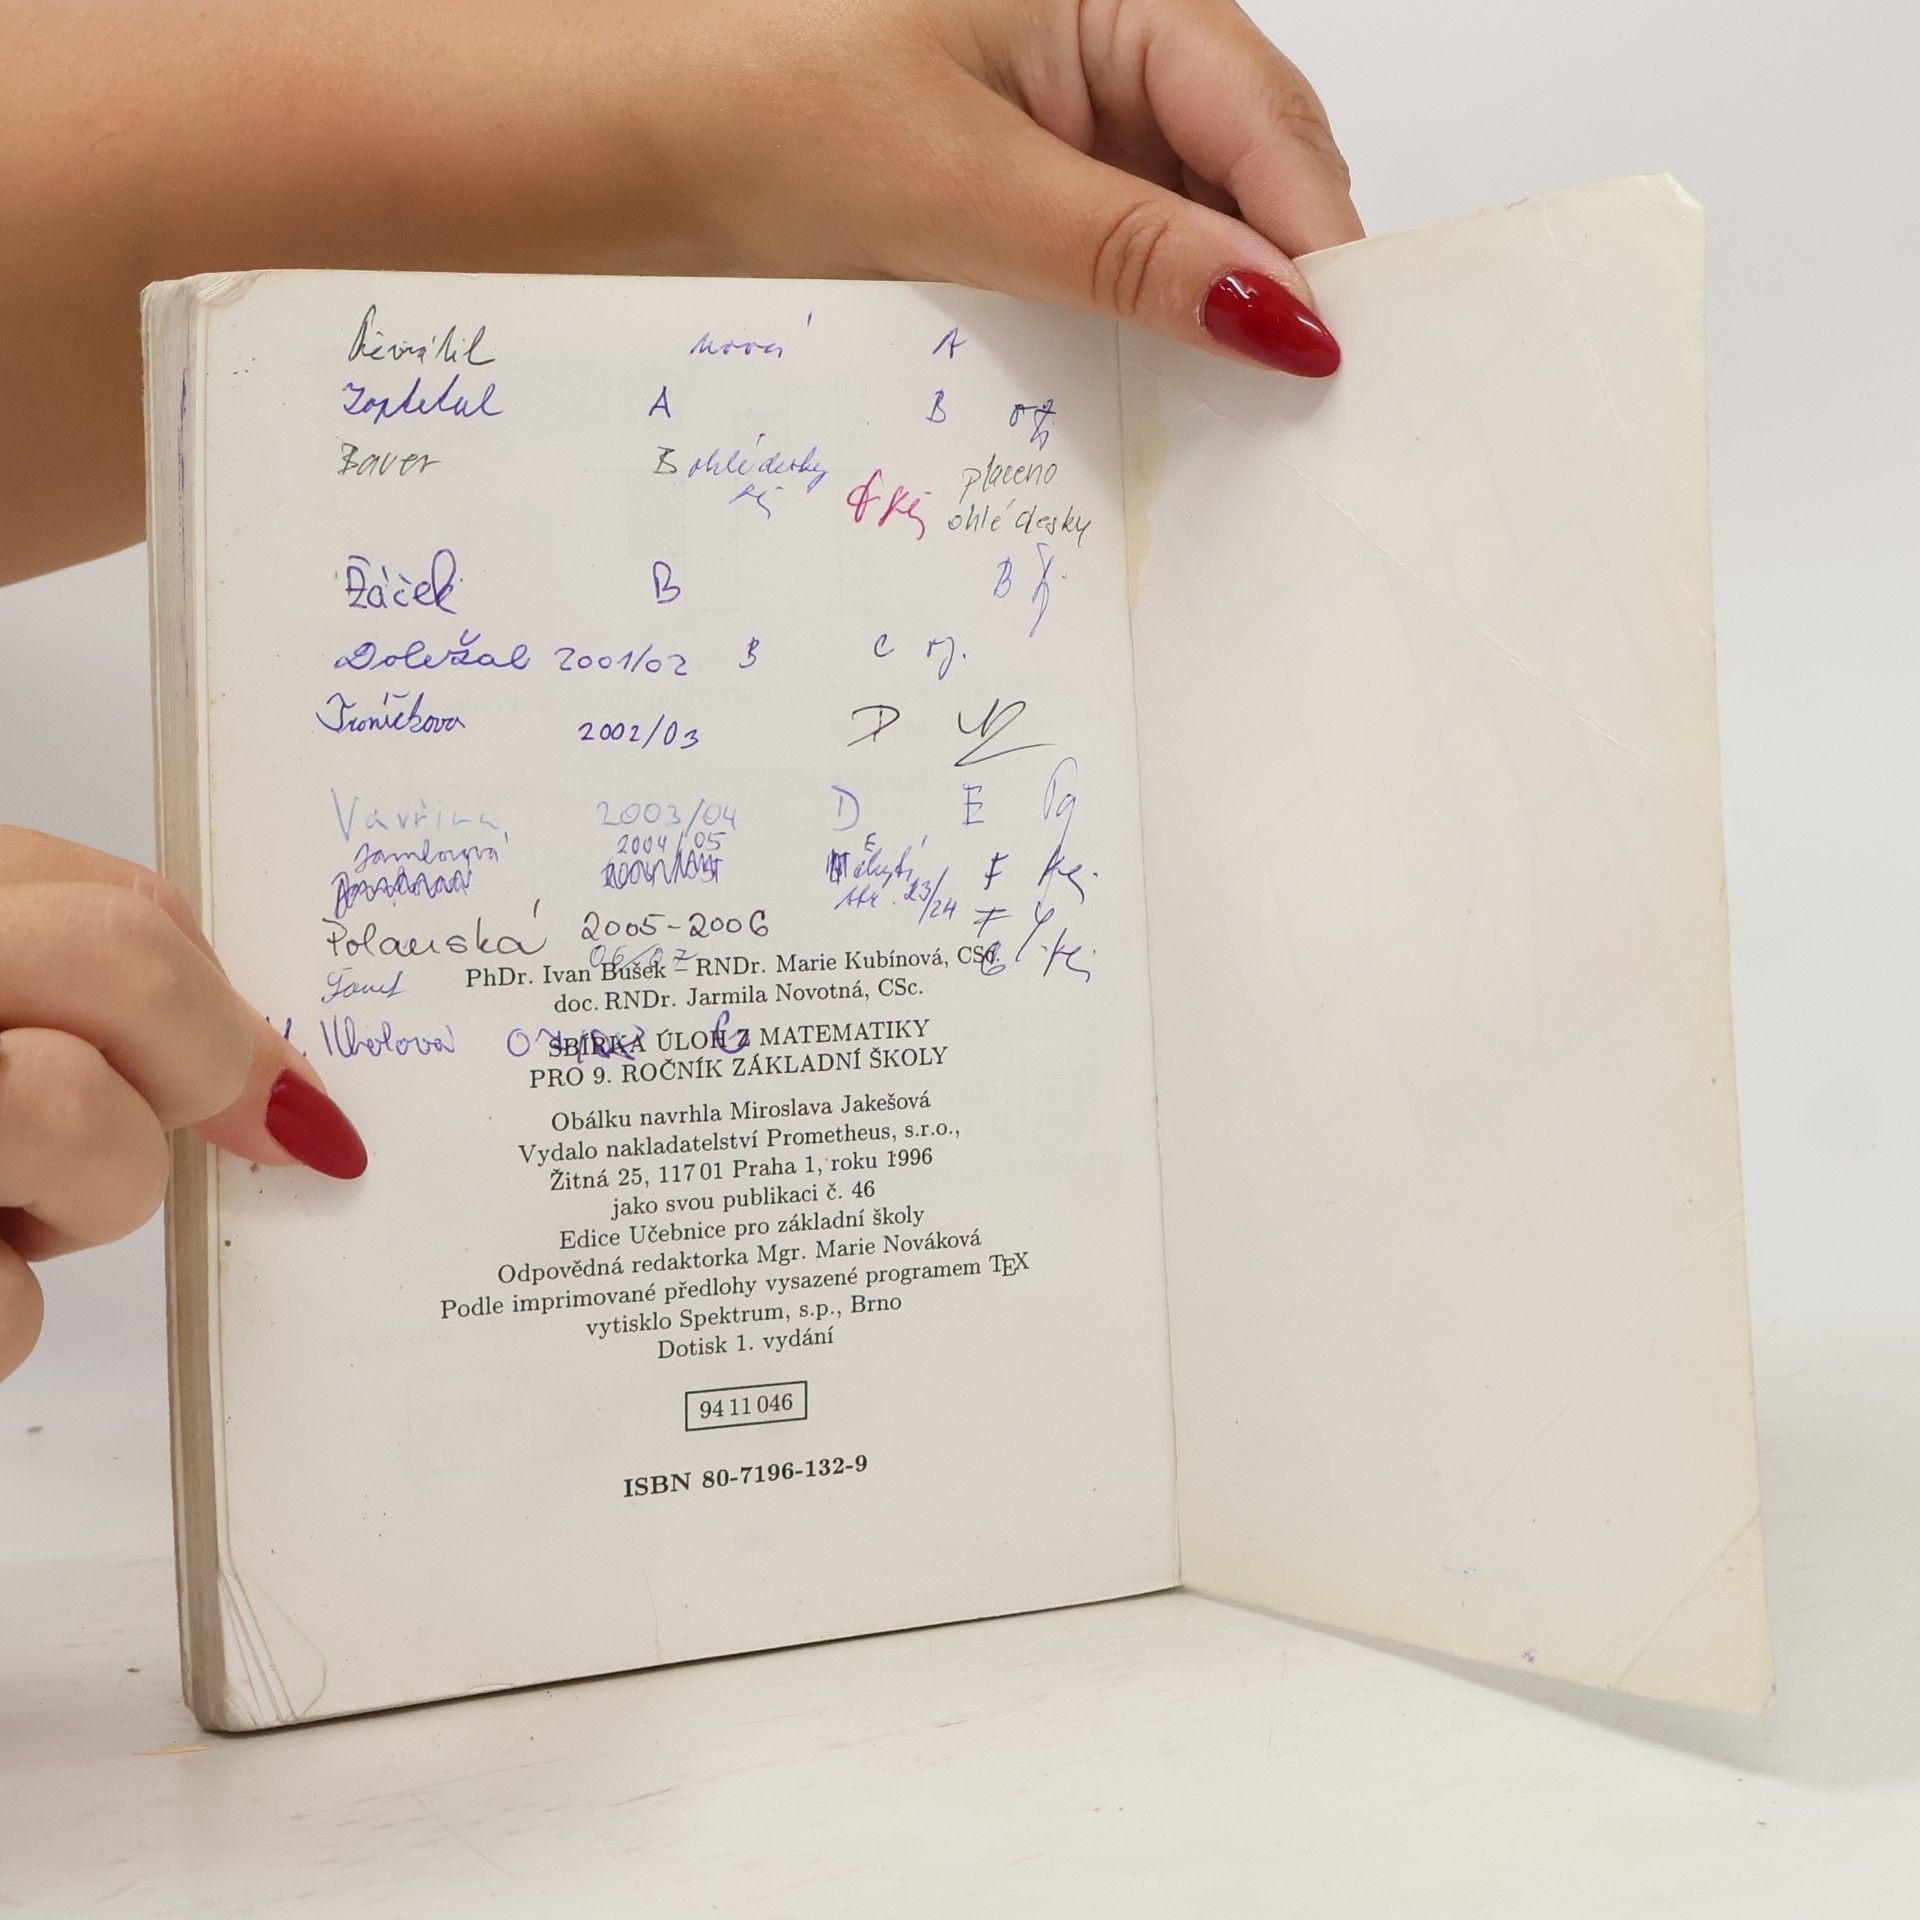 nová A
A B
Bauer B ohlé desky placeno
kj ohlé desky
Žáček B B
Doležal 2001/02 B C
Troníčková 2002/03 D
Vavřina 2003/04 D E
2004/05 E
chybí F
str. 23/24
Polanská 2005-2006 F
06/07
PhDr. Ivan Bušek – RNDr. Marie Kubínová, CSc.
doc. RNDr. Jarmila Novotná, CSc.
SBÍRKA ÚLOH Z MATEMATIKY
PRO 9. ROČNÍK ZÁKLADNÍ ŠKOLY
Obálku navrhla Miroslava Jakešová
Vydalo nakladatelství Prometheus, s.r.o.,
Žitná 25, 117 01 Praha 1, roku 1996
jako svou publikaci č. 46
Edice Učebnice pro základní školy
Odpovědná redaktorka Mgr. Marie Nováková
Podle imprimované předlohy vysazené programem TEX
vytisklo Spektrum, s.p., Brno
Dotisk 1. vydání
94 11 046
ISBN 80-7196-132-9